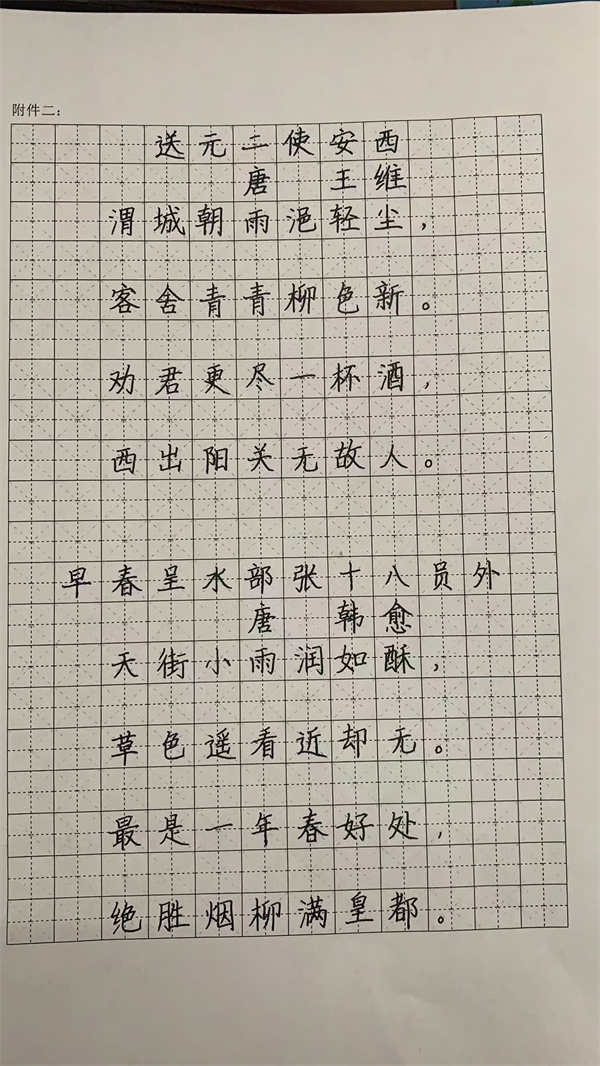 附件二：
送元二使安西
唐 王维
渭城朝雨浥轻尘，
客舍青青柳色新。
劝君更尽一杯酒，
西出阳关无故人。
早春呈水部张十八员外
唐 韩愈
天街小雨润如酥，
草色遥看近却无。
最是一年春好处，
绝胜烟柳满皇都。